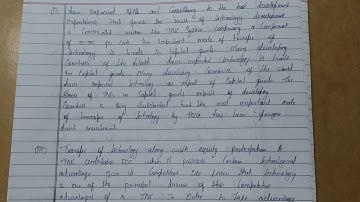 have improved skills and Consultancy to the host development
Expenditure that forms the basis of technology development
is Concentrated within the TNC System comprising a Component
of for Cost. One important mode of transfer of
technology is trade in Capital goods. Many developing
Countries of the World have imported technology is trade
in Capital goods. Many developing Countries of the World
have imported technology as import of Capital goods. The
Share of TNCs in Capital goods imports of developing
Countries is being Substantial but the most important mode
of transfer of technology by TNCs has been foreign
direct investment.
Transfer of technology along with equity participation. A
TNC undertake FDI when it possess Certain technological
advantage over its Competitors. We know that technology
is one of the principal source of the Competitive
advantages of a TNC. In Order to take advantage